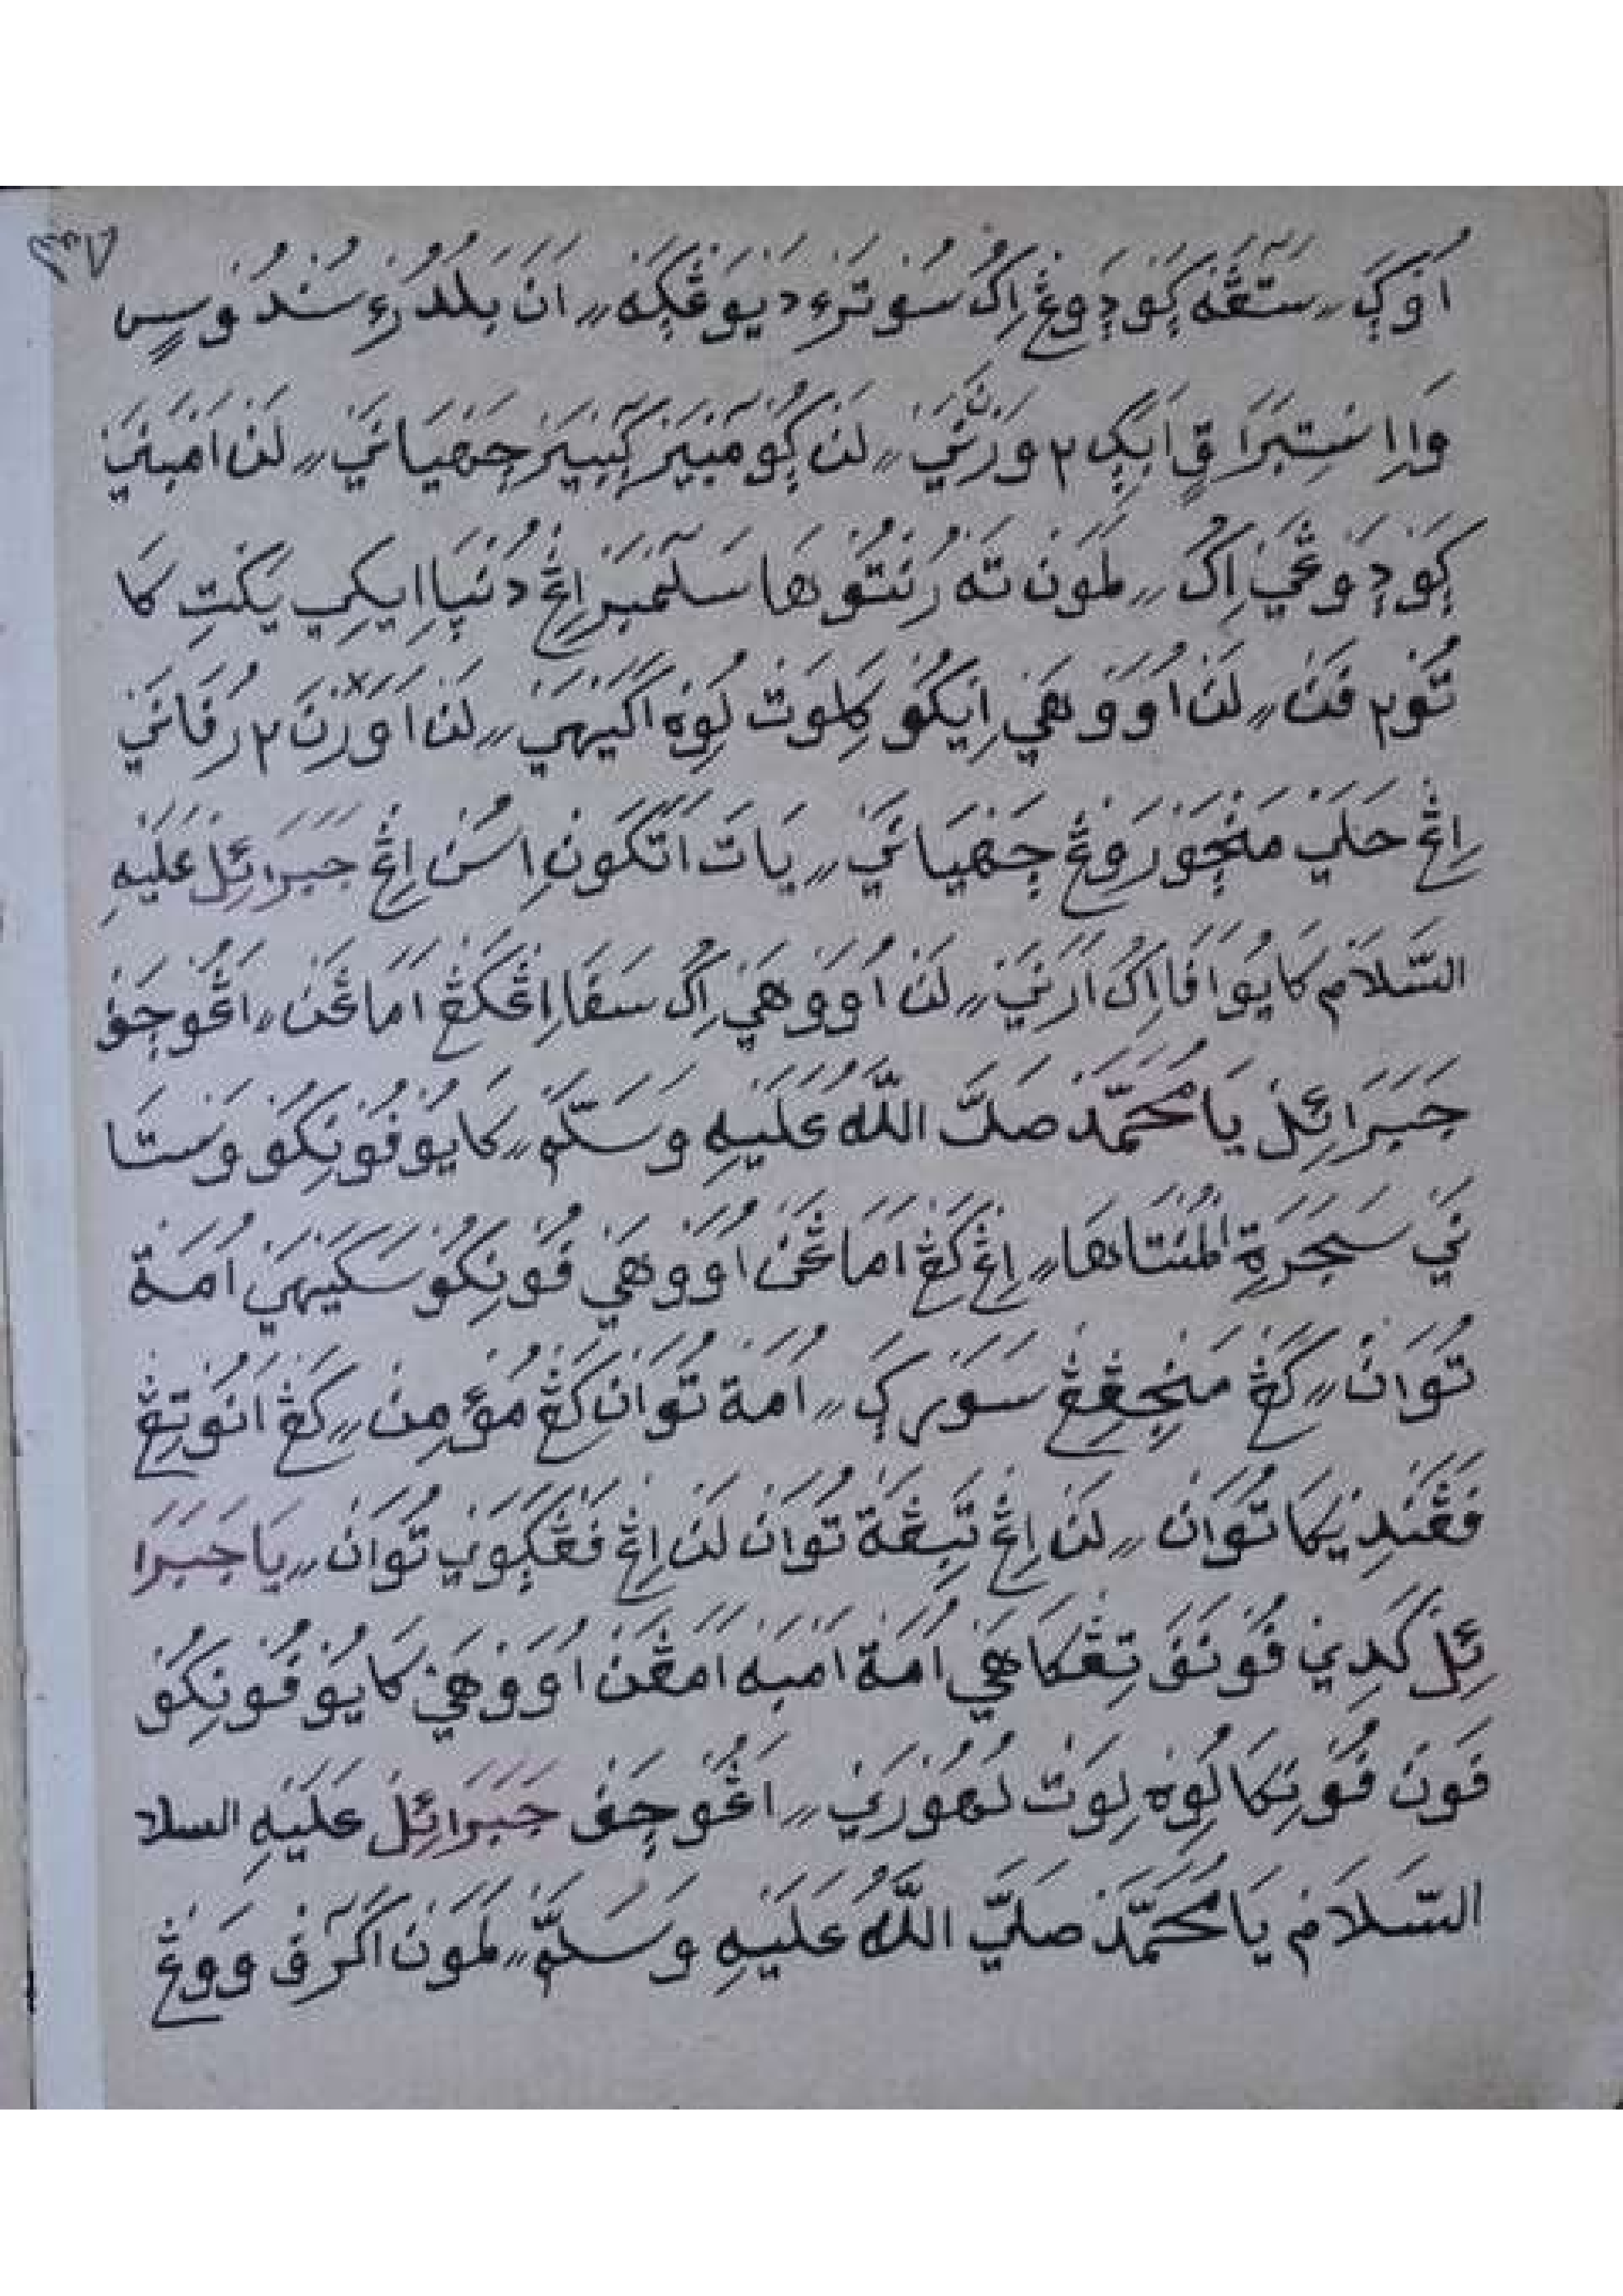 اُوْكَ ۥ سَتَڠَهْ كَوْدَوڠْ اِكُ سُوْتَرَءْ دَيَوڠْكَهْ ۥ اَنَ بَلَدُرَءْ سُنْدُوْسٍ
وَاِاسْتِبْرَاقٍ اَبَكٖ ٢ وَرْنَنَيْ ۥ لَنْ كُوْمٓبْيَرْ كٓبْيَرْ چَهْيَانَيْ ۥ لَنْ اَمْبَنَيْ
كَوْدَوڠَيْ اِكُ ۥ لَمَوْنْ تَهْ رُنْتُوْهَا سَلٓمْبَرْ اِڠْ دُنْيَااِيْكِيْ يَكْتِ كَا
تُوْ٢ فَنْ ۥ لَنْ اُوَوْهَيْ اِيْكُوْ كَلِوَتْ لُوِهْ اَكَيْهَيْ ۥ لَنْ اَوَرْنَ ٢ رُفَانَيْ
اِڠْ حَلَيْ مَنْچَوْرَوڠْ چَهْيَانَيْ ۥ يَاتَ اَتَكَوْنْ اِسُنْ اِڠْ جَبَرَائِلْ عَلَيْهِ
السَّلَامْ كَايُوْاَفَااِكُ اَرَنَيْ ۥ لَنْ اُوَوْهَيْ اِكُ سَفَااِڠْكَڠْ اَمَاڠَنْ ۥ اَڠُوْچَفْ
جَبَرَائِلْ يَا مُحَمَّدْ صَلَّ اللَّهُ عَلَيْهِ وَسَلَّمْ ۥ كَايُوْفُوْنِكُوْ وَسْتَا
نَيْ سَجَرَةِ الْمُنْتَاهَا ۥ اِڠْ كَڠْ اَمَاڠَنْ اُوَوْهَيْ فُوْنِكُوْ سَكَيْهَيْ اُمَةْ
تُوَانْ ۥ كَڠْ مَنْجِڠْڠِڠْ سَوَرْكَ ۥ اُمَةْ تُوَانْ كَڠْ مُؤْمِنْ ۥ كَڠْ اَنُوْتِڠْ
فَڠَنْدِيْكَا تُوَانْ ۥ لَنْ اِڠْ تَبِڠَةْ تُوَانْ لَنْ اِڠْ فَڠْكَوْيْ تُوَانْ ۥ يَا جَبَرَا
ئِلْ كَدِيْ فُوْنَفَ تِڠْكَاهَيْ اُمَةْ اَمْبَهْ اَمَڠَنْ اُوَوْهَيْ كَايُوْ فُوْنِكُوْ
فَوْنْ فُوْنِكَا لُوِهْ لِوَتْ لُهُوْرَيْ ۥ اَڠُوْچَفْ جَبَرَائِلْ عَلَيْهِ السلا
السَّلَامْ يَا مُحَمَّدْ صَلَيَّ اللَّهُ عَلَيْهِ وَسَلَّمْ ۥ لَمَوْنْ اَكَرٓفْ وَوڠْ